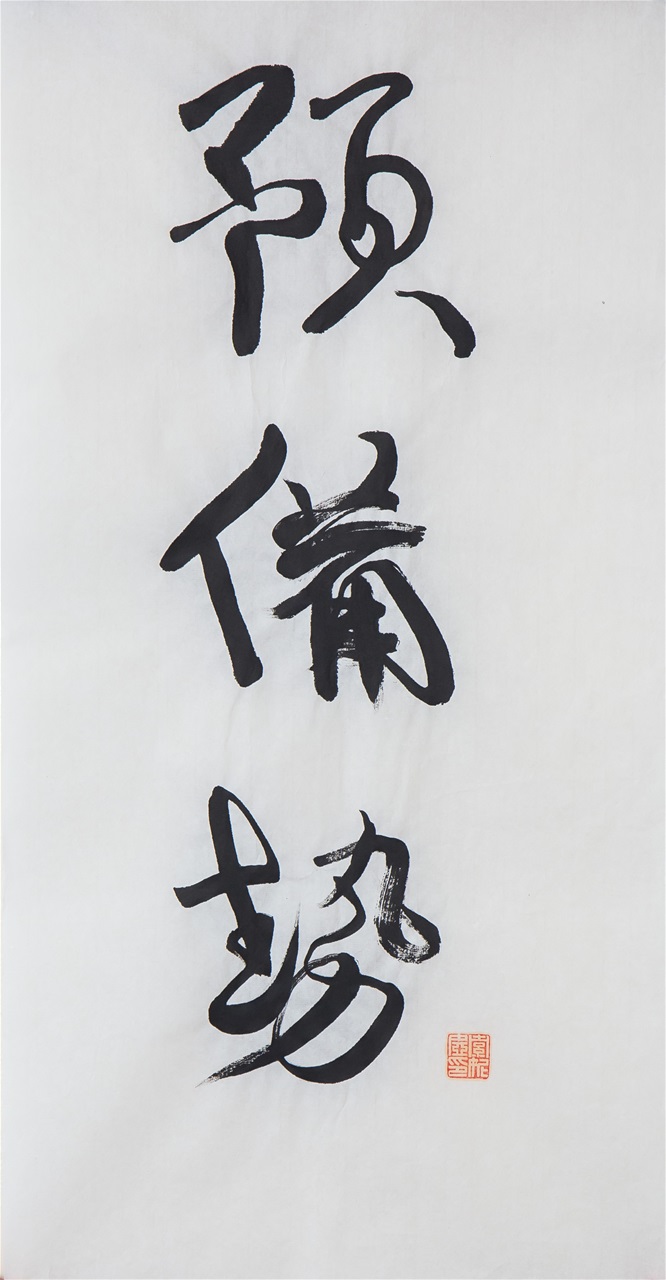 預備勢